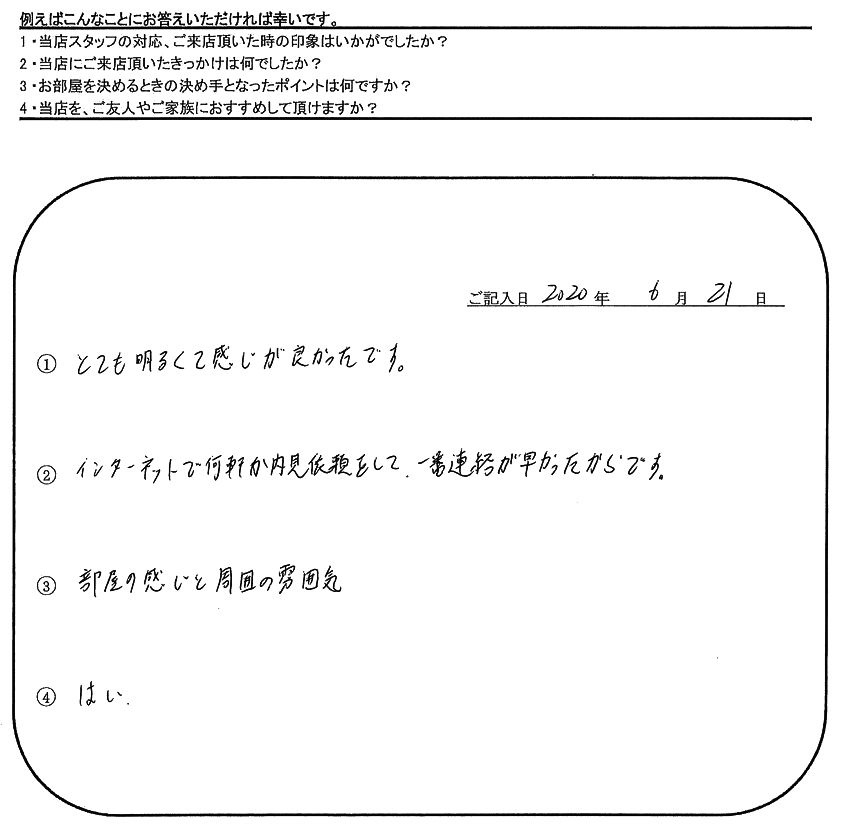 例えばこんなことにお答えいただければ幸いです。
1・当店スタッフの対応、ご来店頂いた時の印象はいかがでしたか？
2・当店にご来店頂いたきっかけは何でしたか？
3・お部屋を決めるときの決め手となったポイントは何ですか？
4・当店を、ご友人やご家族におすすめして頂けますか？
ご記入日 2020年 6月 21日
① とても明るくて感じが良かったです。
② インターネットで何軒か内見依頼をして、一番連絡が早かったからです。
③ 部屋の感じと周囲の雰囲気
④ はい.